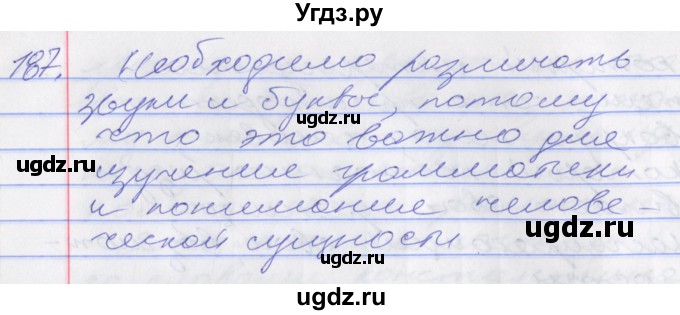 Угдз.ру
187. Необходимо различать
звуки и буквы, потому
что это важно для
изучение грамматеки
и понимание челове-
ческой сущносты
ugdz.ru ugdz.ru
ugdz.ru
ugdz.ru
ugdz.ru ugdz.ru
ugdz.ru